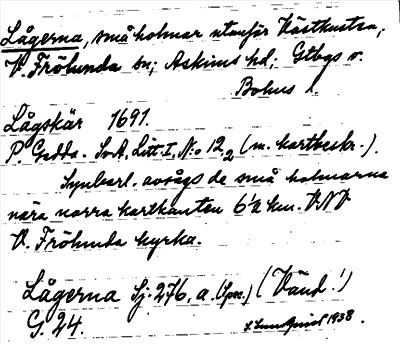 Lågerna, små holmar utanför Västkusten,
V. Frölunda sn; Askims hd; Gtbgs o.
Bohus l.
Lågskär 1691.
P. Gedda. SvA, Litt. I, N:o 12,2 (m. kartbeskr.).
Synbarl. avsågs de små holmarna
nära norra kartkanten 6 1/2 km. VNV
V. Frölunda kyrka.
Lågerna Sj. 276. a. (Spec.) (Vänd!)
G. 24.
S. Lundquist 1938.